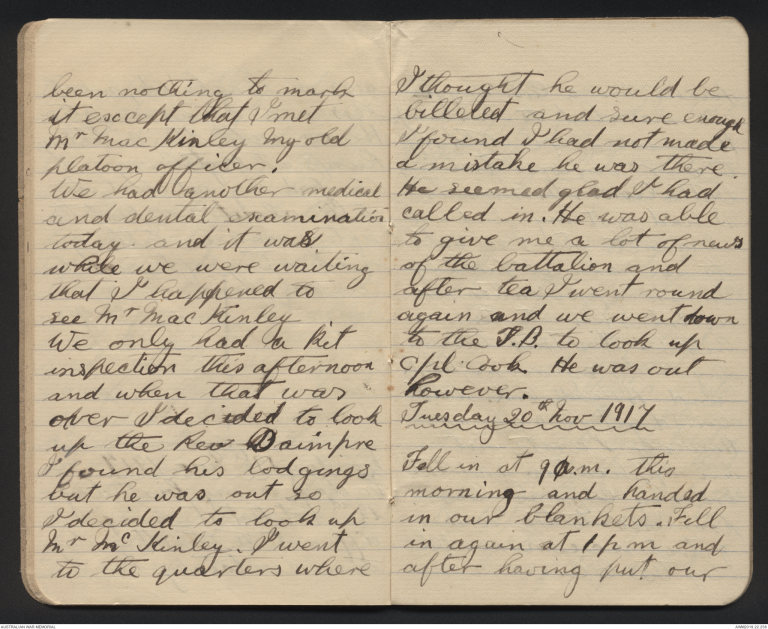 been nothing to mark
it except that I met
Mr Mac Kinley my old
platoon officer.
We had another medical
and dental examination
today. and it was
while we were waiting
that I happened to
see Mr Mac Kinley
We only had a kit
inspection this afternoon
and when that was
over I decided to look
up the Rev Daimpre
I found his lodgings
but he was out so
I decided to look up
Mr Mc Kinley. I went
to the quarters where
I thought he would be
billeted and sure enough
I found I had not made
a mistake he was there.
He seemed glad I had
called in. He was able
to give me a lot of news
of the battalion and
after tea I went round
again and we went down
to the P.B. to look up
Cpl. Cook. He was out
however.
Tuesday 20th Nov 1917
Fell in at 9 a.m. this
morning and handed
in our blankets. Fell
in again at 1 pm and
after having put our
AUSTRALIAN WAR MEMORIAL